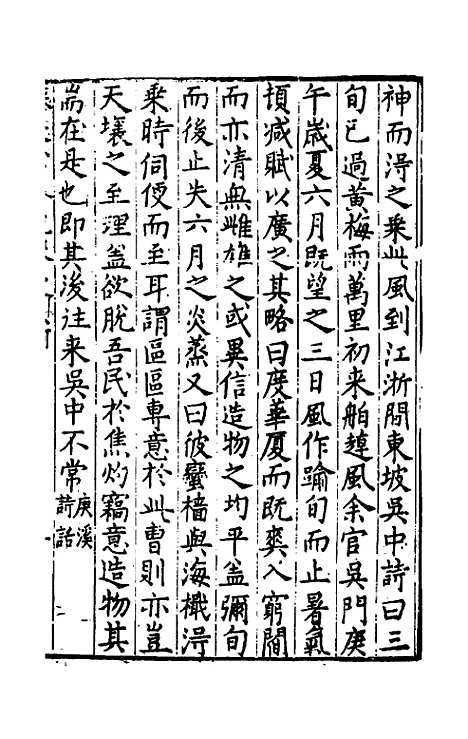 神而淂之乗此風到江浙間東坡吳中詩曰三
旬已過黃梅雨萬里初来舶趠風余官吳門庚
午歲夏六月既望之三日風作踰旬而止暑氣
頓减賦以廣之其略曰度華厦而既爽入窮閻
而亦清無雌雄之或異信造物之均平盖彌旬
而後止失六月之炎蒸又曰彼蠻檣與海檝淂
乗時伺便而至耳謂區區專意於此曹則亦豈
天壤之至理盖欲脫吾民於焦灼竊意造物其
耑在是也即其後往来吳中不常
庚溪
詩話